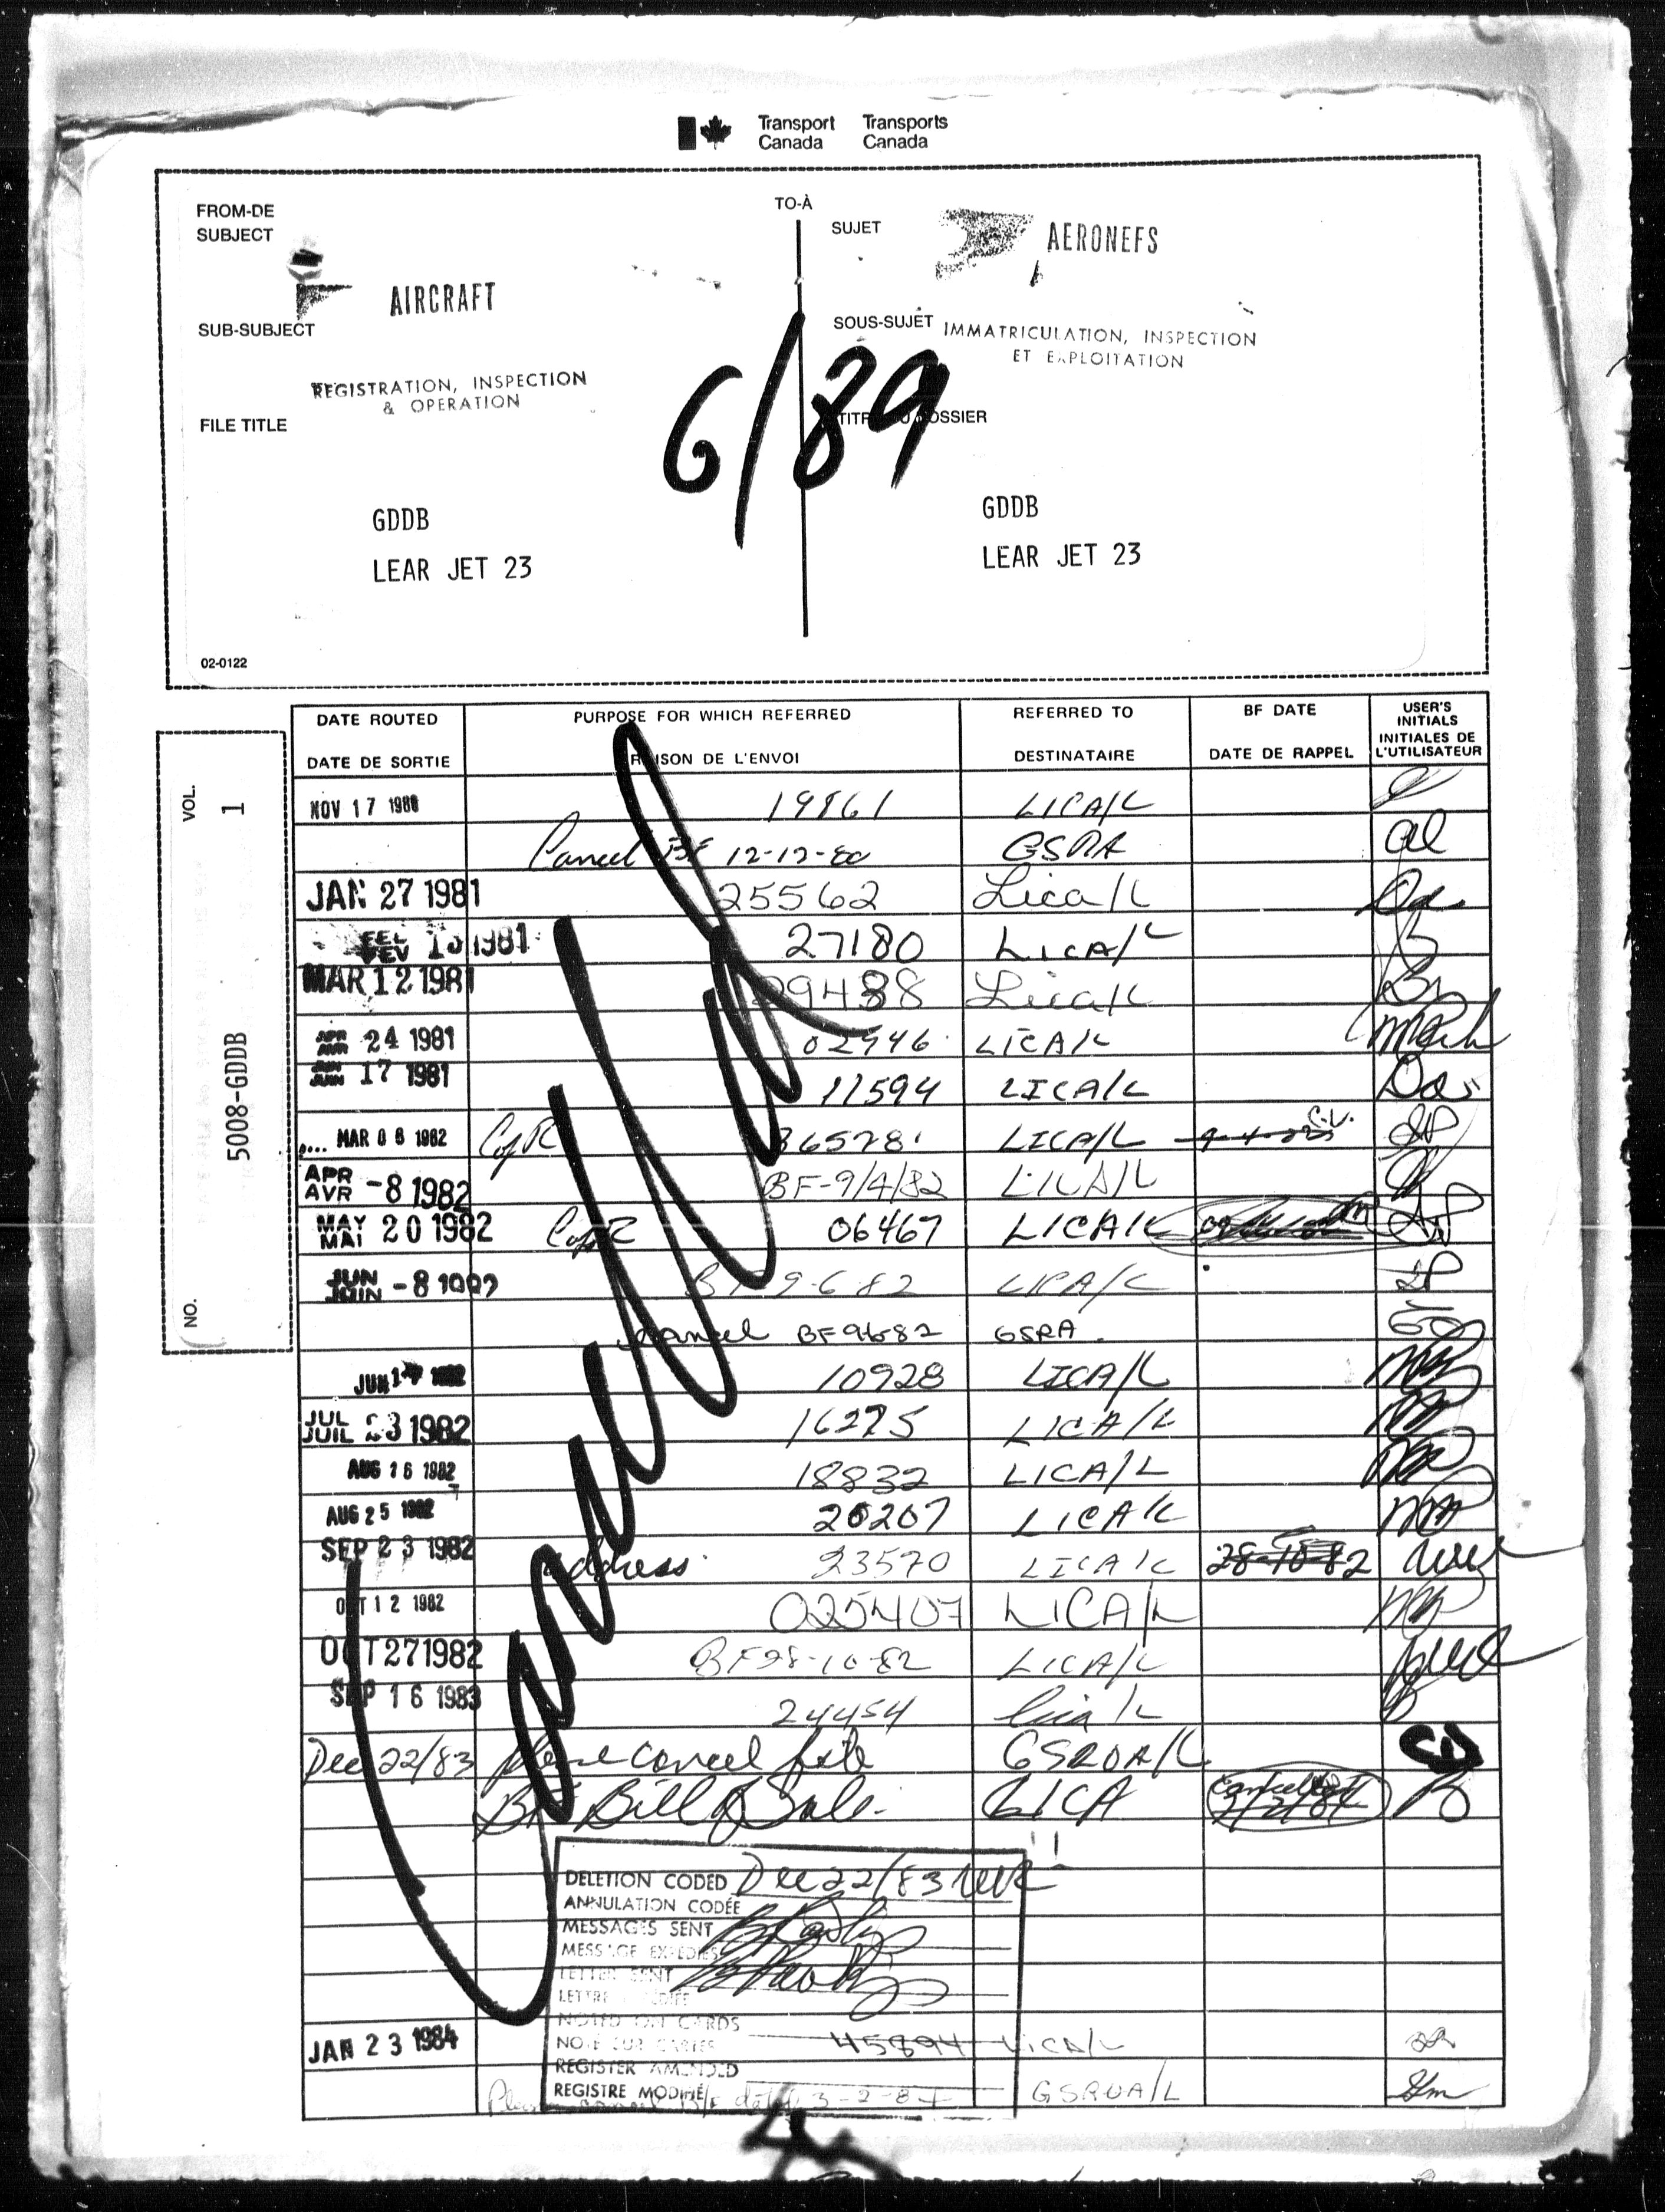 Transport Transports
Canada Canada
FROM-DE TO-À
SUBJECT SUJET
AIRCRAFT AERONEFS
SUB-SUBJECT SOUS-SUJET
REGISTRATION, INSPECTION IMMATRICULATION, INSPECTION
& OPERATION ET EXPLOITATION
6/89
FILE TITLE TITRE DU DOSSIER
GDDB GDDB
LEAR JET 23 LEAR JET 23
02-0122
VOL. 1
5008-GDDB
NO.
DATE ROUTED PURPOSE FOR WHICH REFERRED REFERRED TO BF DATE USER'S INITIALS
DATE DE SORTIE RAISON DE L'ENVOI DESTINATAIRE DATE DE RAPPEL INITIALES DE L'UTILISATEUR
Cancelled
NOV 17 1980 19861 LICA/L
Cancel BF 12-12-80 GSRA al
JAN 27 1981 25562 Lica/L
FEV 13 1981 27180 LICA/L
MAR 12 1981 29488 Lica/L
APR AVR 24 1981 02946 LICA/L
JUN JUIN 17 1981 11594 LICA/L
MAR 08 1982 LICA/L
APR AVR -8 1982 BF-9/4/82 LICA/L
MAY MAI 20 1982 06467 LICA/L
JUN JUIN -8 1982 BF 9-6-82 LICA/L
Cancel BF 9-6-82 GSRA
JUN 1982 10928 LICA/L
JUL JUIL 23 1982 16275 LICA/L
AUG 16 1982 18832 LICA/L
AUG 25 1982 20207 LICA/L
SEP 23 1982 address 23570 LICA/L 28-10-82
OCT 12 1982 025407 LICA/L
OCT 27 1982 BF 28-10-82 LICA/L
SEP 16 1983 24454 Lica/L
Dec 22/83 please cancel file GSROA/L
BF Bill of Sale LICA
DELETION CODED Dec 22/83
ANNULATION CODÉE
MESSAGES SENT
MESSAGE EXPEDIES
LETTER SENT
LETTRE
NOTED ON CARDS
JAN 23 1984 NOTÉ SUR CARTES 45894 LICA/L
REGISTER AMENDED
REGISTRE MODIFIÉ
Please cancel B/F dated 3-2-84 GSROA/L